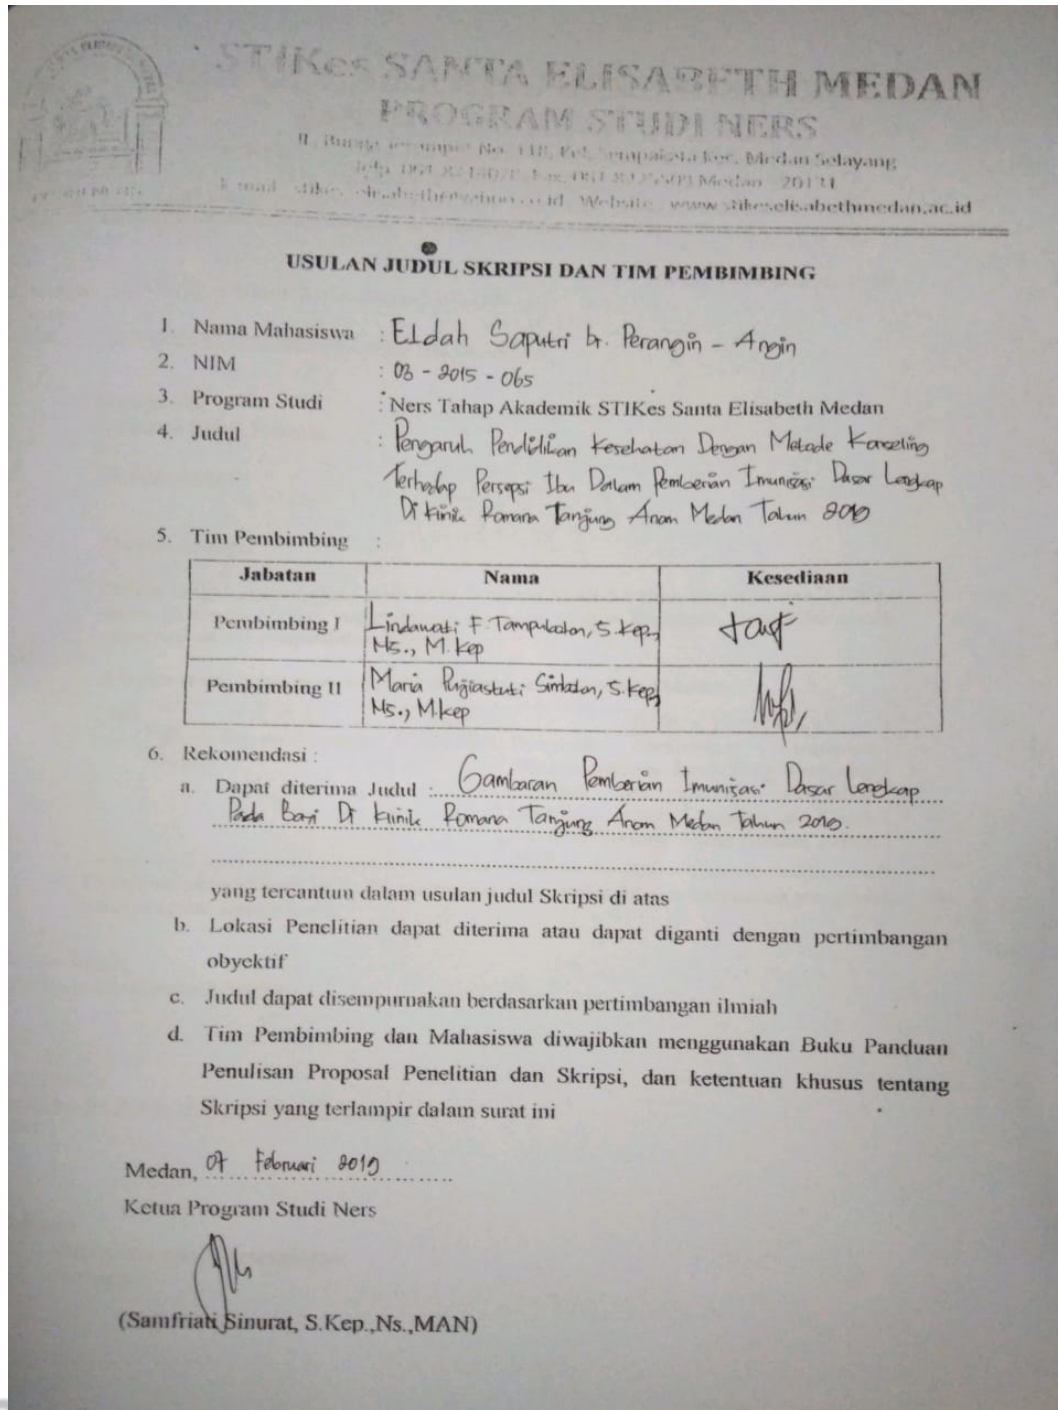 STIKes SANTA ELISABETH MEDAN
PROGRAM STUDI NERS
No. 118, Kel. Sempakata Kec. Medan Selayang
Medan 20131
Website www.stikeselisabethmedan.ac.id
USULAN JUDUL SKRIPSI DAN TIM PEMBIMBING
1. Nama Mahasiswa : Eldah Saputri br. Perangin - Angin
2. NIM : 03 - 2015 - 065
3. Program Studi : Ners Tahap Akademik STIKes Santa Elisabeth Medan
4. Judul : Pengaruh Pendidikan Kesehatan Dengan Metode Konseling
Terhadap Persepsi Ibu Dalam Pemberian Imunisasi Dasar Lengkap
Di Klinik Romana Tanjung Anom Medan Tahun 2019
5. Tim Pembimbing :
Jabatan Nama Kesediaan
Pembimbing I Lindawati F. Tampubolon, S.Kep.,
Ns., M.Kep
Pembimbing II Maria Pujiastuti Simbolon, S.Kep,
Ns., M.Kep
6. Rekomendasi :
a. Dapat diterima Judul : Gambaran Pemberian Imunisasi Dasar Lengkap
Pada Bayi Di Klinik Romana Tanjung Anom Medan Tahun 2019.
yang tercantum dalam usulan judul Skripsi di atas
b. Lokasi Penelitian dapat diterima atau dapat diganti dengan pertimbangan
obyektif
c. Judul dapat disempurnakan berdasarkan pertimbangan ilmiah
d. Tim Pembimbing dan Mahasiswa diwajibkan menggunakan Buku Panduan
Penulisan Proposal Penelitian dan Skripsi, dan ketentuan khusus tentang
Skripsi yang terlampir dalam surat ini
Medan, 07 Februari 2019
Ketua Program Studi Ners
(Samfriati Sinurat, S.Kep.,Ns.,MAN)